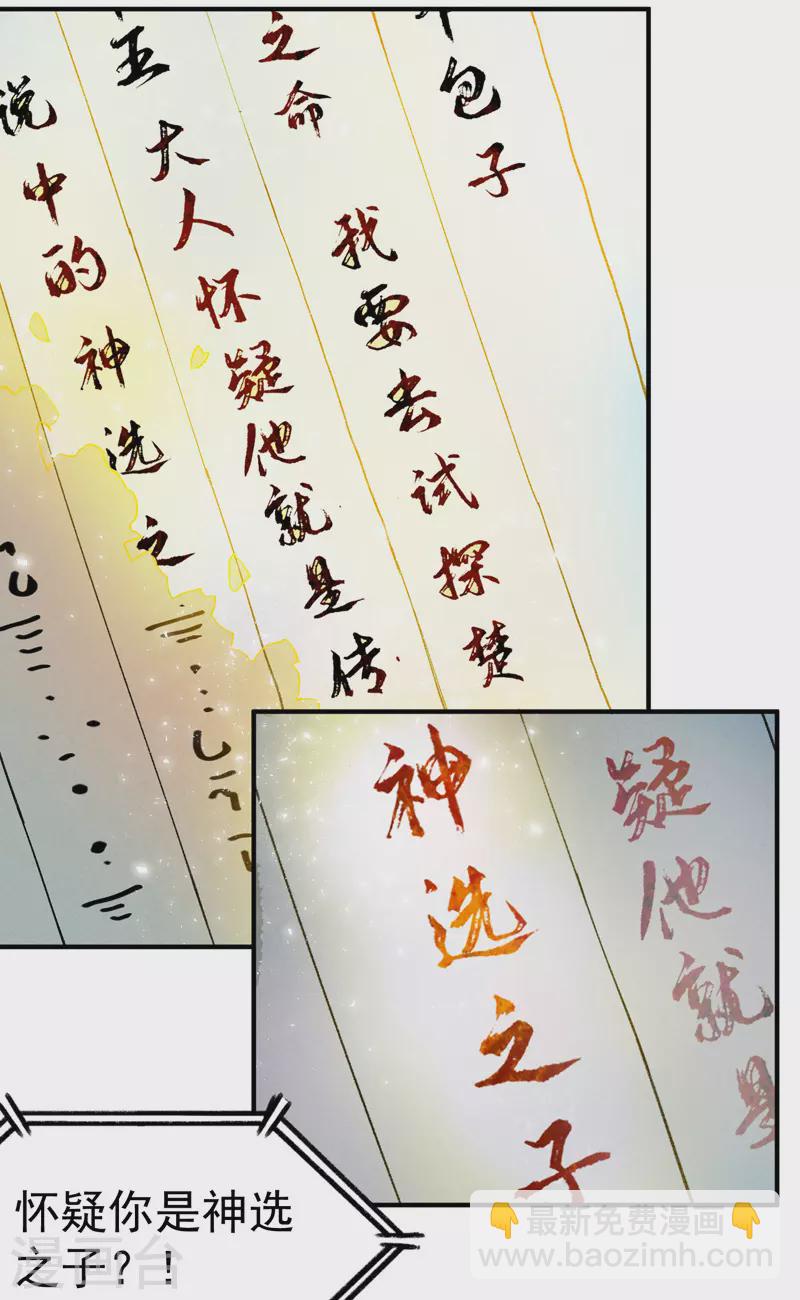 包子
之命 我要去试探楚
王大人怀疑他就是传
说中的神选之
疑他就是
神选之子
怀疑你是神选
之子?!
漫画台
👇最新免费漫画👇
www.baozimh.com